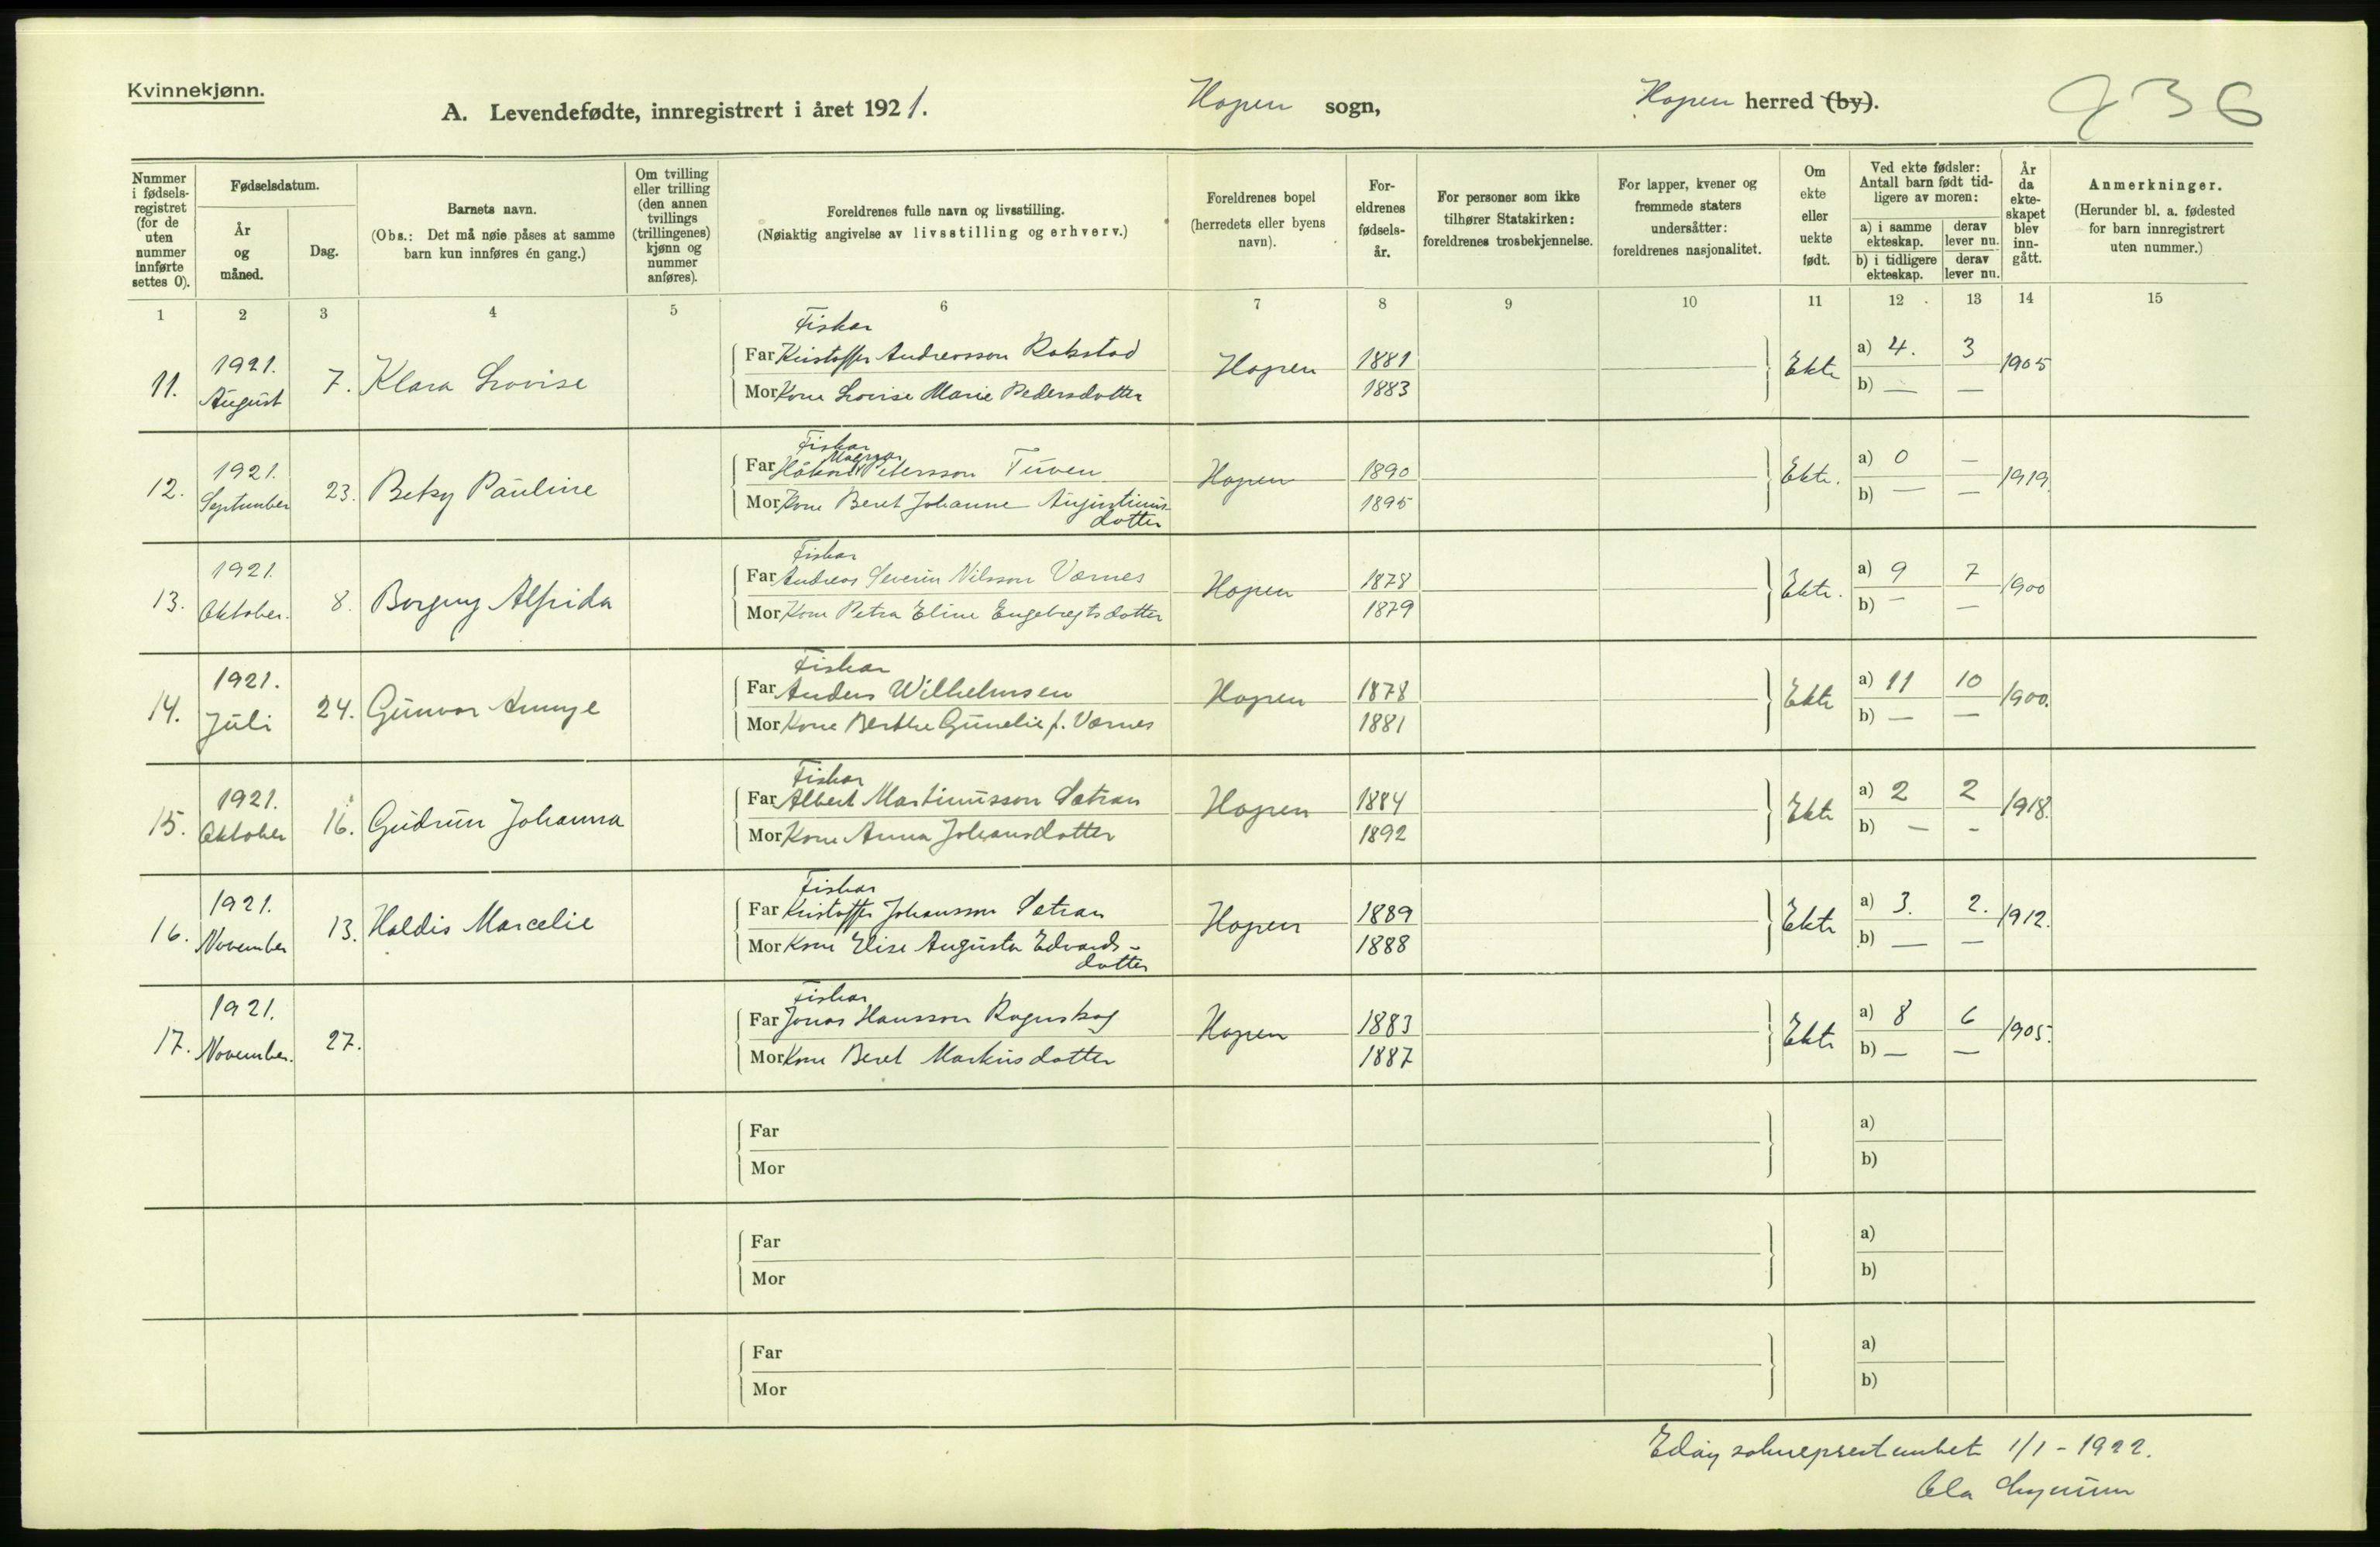 Kvinnekjønn.
A. Levendefødte, innregistrert i året 1921. Hopen sogn, Hopen herred (by). 936
Nummer i fødselsregistret (for de uten nummer innførte settes 0).
Fødselsdatum.
År og måned.
Dag.
Barnets navn.
(Obs.: Det må nøie påses at samme barn kun innføres én gang.)
Om tvilling eller trilling (den annen tvillings (trillingenes) kjønn og nummer anføres).
Foreldrenes fulle navn og livsstilling.
(Nøiaktig angivelse av livsstilling og erhverv.)
Foreldrenes bopel (herredets eller byens navn).
Foreldrenes fødselsår.
For personer som ikke tilhører Statskirken: foreldrenes trosbekjennelse.
For lapper, kvener og fremmede staters undersåtter: foreldrenes nasjonalitet.
Om ekte eller uekte født.
Ved ekte fødsler: Antall barn født tidligere av moren:
a) i samme ekteskap. derav lever nu.
b) i tidligere ekteskap. derav lever nu.
År da ekteskapet blev inngått.
Anmerkninger.
(Herunder bl. a. fødested for barn innregistrert uten nummer.)
1 2 3 4 5 6 7 8 9 10 11 12 13 14 15
Fiskar
11. 1921. August 7. Klara Lovise Far Kristoffer Andreasson Rokstad Hopen 1881 Ekte a) 4. 3 1905
Mor Kone Lovise Marie Pedersdotter 1883 b) — —
Fiskar
12. 1921. September 23. Betsy Pauline Far Håkon Magnar Petersson Tuven Hopen 1890 Ekte. a) 0 — 1919.
Mor Kone Beret Johanne Augustinus- 1895 b) — —
dotter
Fiskar
13. 1921. Oktober. 8. Borgny Alfrida Far Andreas Severin Nilsson Værnes Hopen 1878 Ekte. a) 9 7 1900
Mor Kone Petra Eline Engebregtsdotter 1879 b) — —
Fiskar
14. 1921. Juli 24. Gunvor Far Anders Wilhelmsen Hopen 1878 Ekte a) 11 10 1900.
Mor Kone Berthe Gunelie f. Værnes 1881 b) — —
Fiskar
15. 1921. Oktober 16. Gudrun Johanna Far Albert Martinusson Sætran Hopen 1884 Ekte a) 2 2 1918.
Mor Kone Anna Johansdotter 1892 b) — –
Fiskar
16. 1921. November 13. Haldis Marcelie Far Kristoffer Johansson Sætran Hopen 1889 Ekte a) 3. 2. 1912.
Mor Kone Elise Augusta Edvards- 1888 b) — —
dotter
Fiskar
17. 1921. November. 27. Far Jonas Hansson Hopen 1883 Ekte a) 8 6 1905.
Mor Kone Beret Markusdotter 1887 b) — —
Far a)
Mor b)
Far a)
Mor b)
Far a)
Mor b)
Edøy sokneprestembet 1/1 - 1922.
Ola